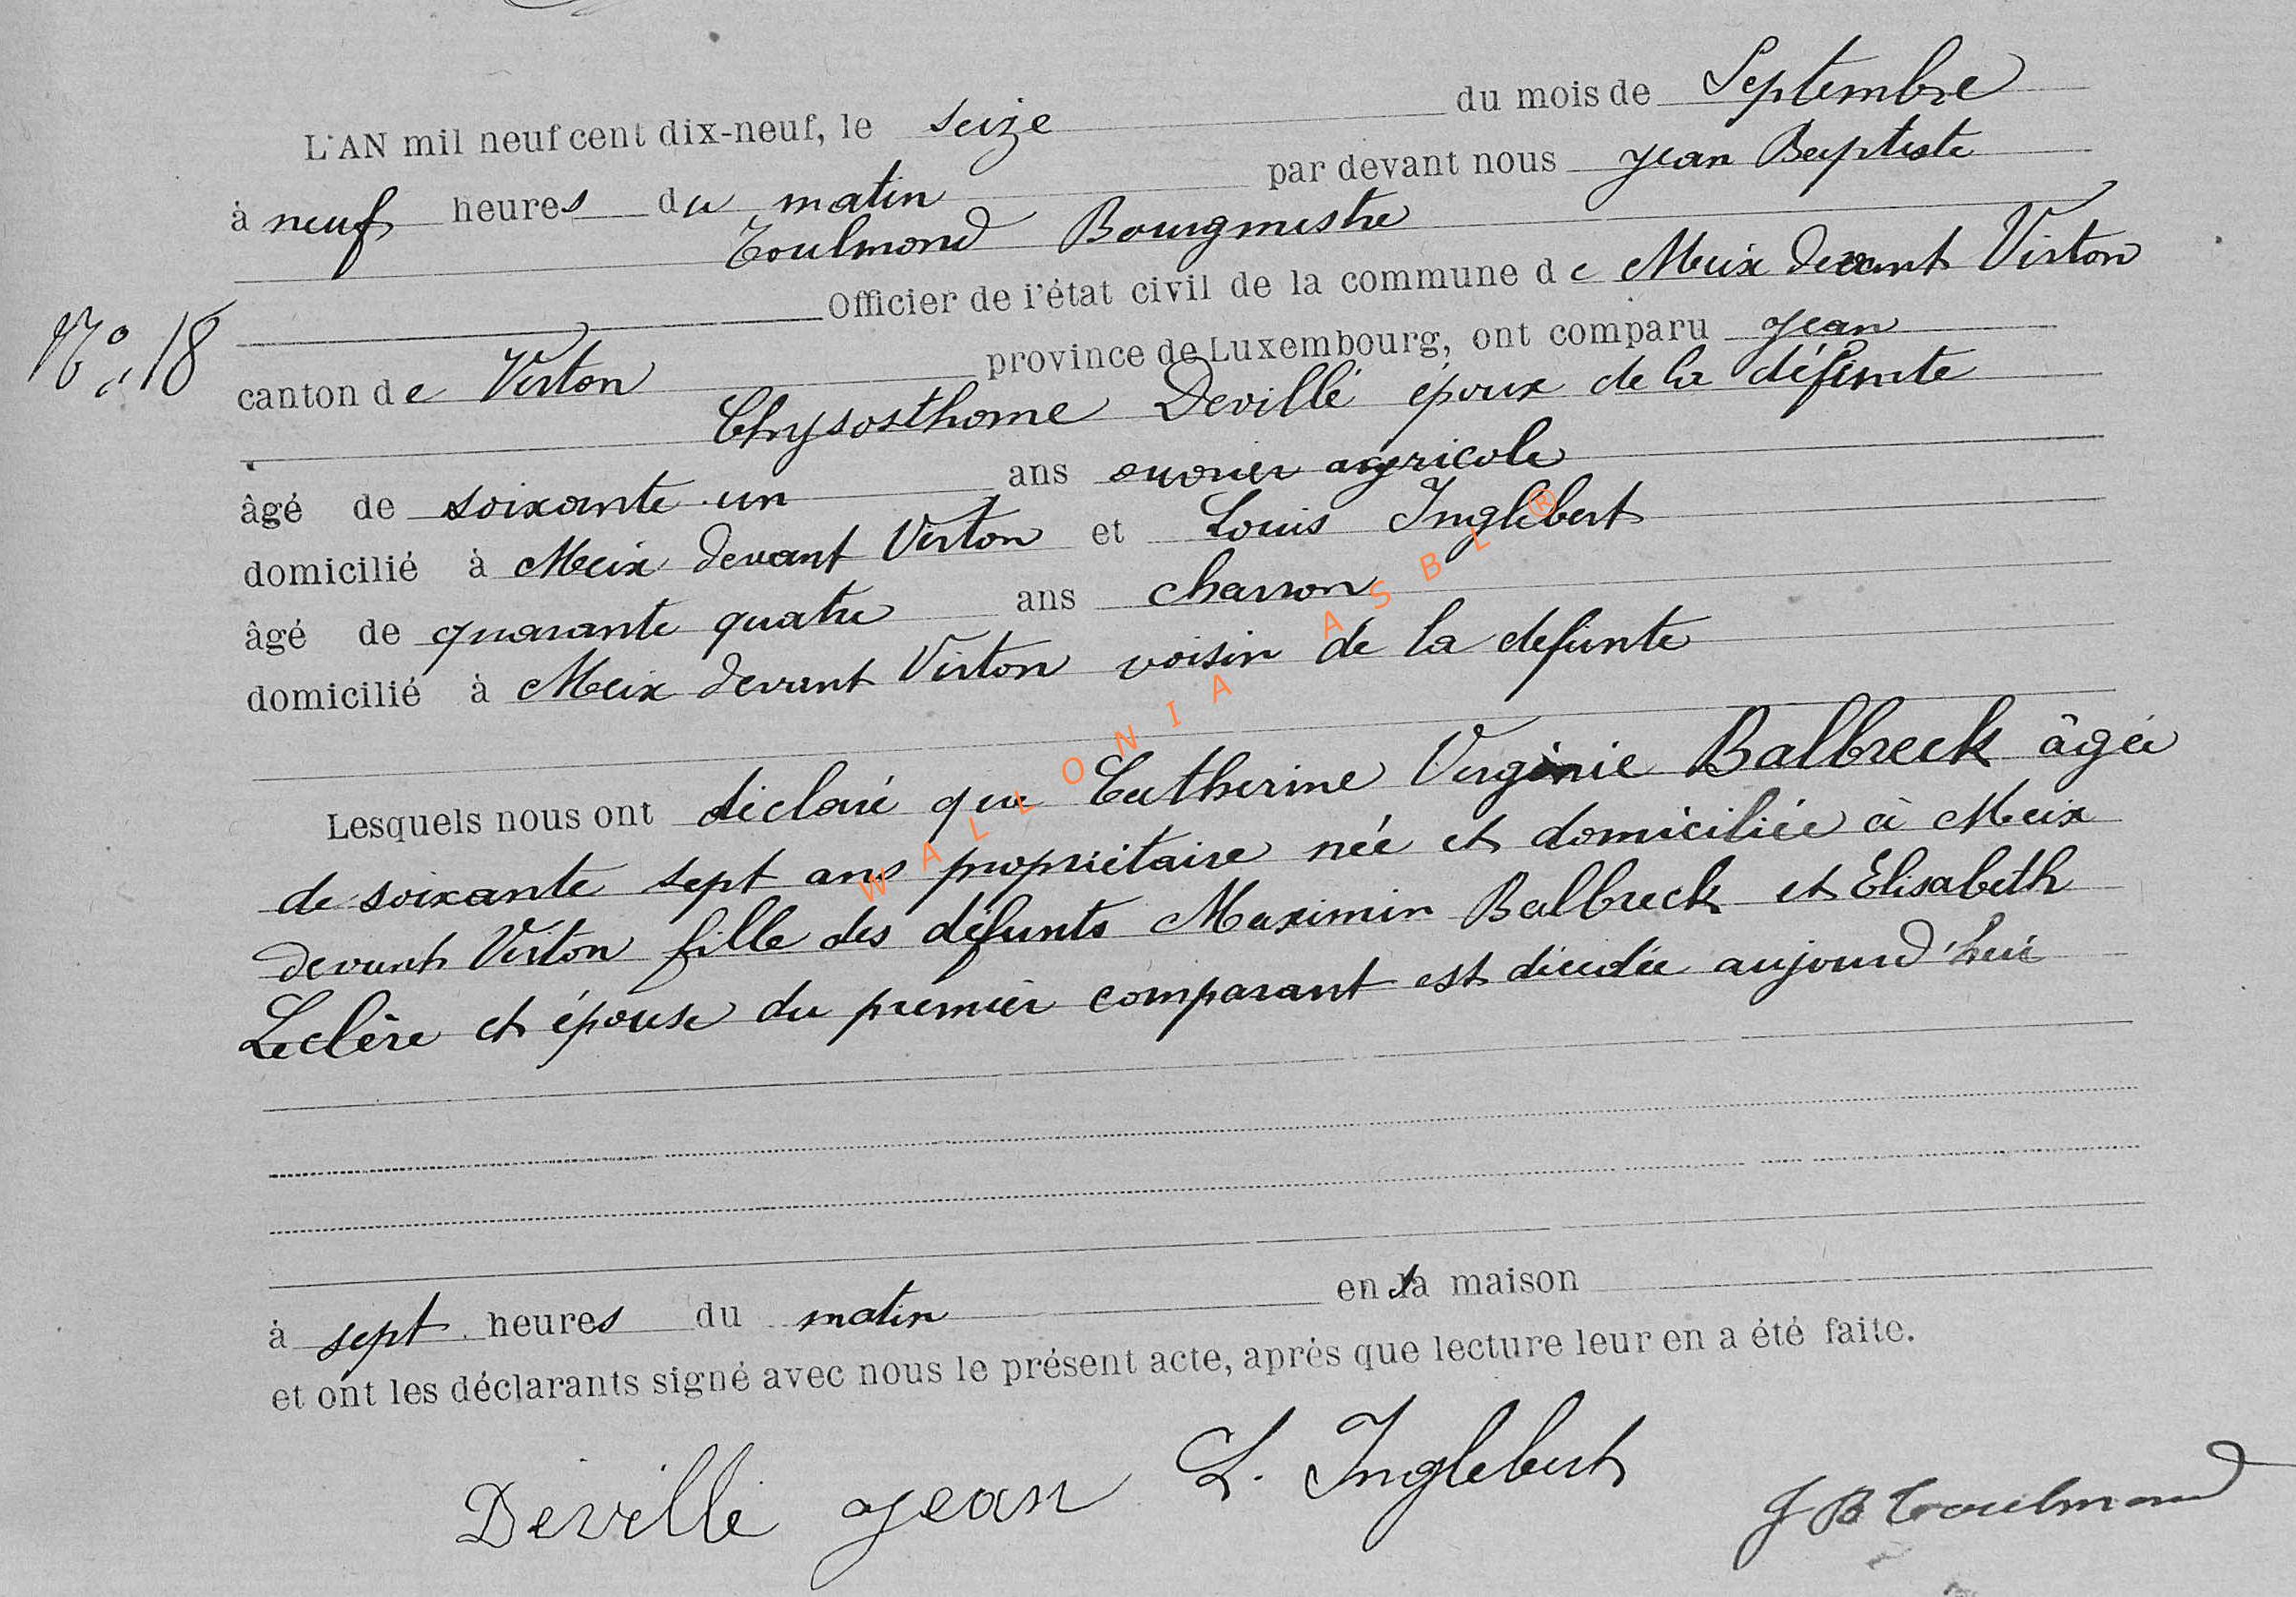 L'AN mil neuf cent dix-neuf, le seize du mois de Septembre
à neuf heures du matin par devant nous Jean Baptiste
Toulmond Bourgmestre
Officier de l'état civil de la commune de Meix devant Virton
N° 18
canton de Virton province de Luxembourg, ont comparu Jean
Chrysosthome Devillé époux de la défunte
âgé de soixante un ans ouvrier agricole
domicilié à Meix devant Virton et Louis Inglebert
âgé de quarante quatre ans charron
domicilié à Meix devant Virton voisin de la defunte
Lesquels nous ont déclaré que Catherine Virginie Balbreck âgée
de soixante sept ans propriétaire née et domiciliée à Meix
devant Virton fille des défunts Maximin Balbreck et Elisabeth
Leclère et épouse du premier comparant est décédée aujourd'hui
à sept heures du matin en sa maison
et ont les déclarants signé avec nous le présent acte, après que lecture leur en a été faite.
Devillé Jean L. Inglebert J B Toulmond
WALLONIA ASBL ®